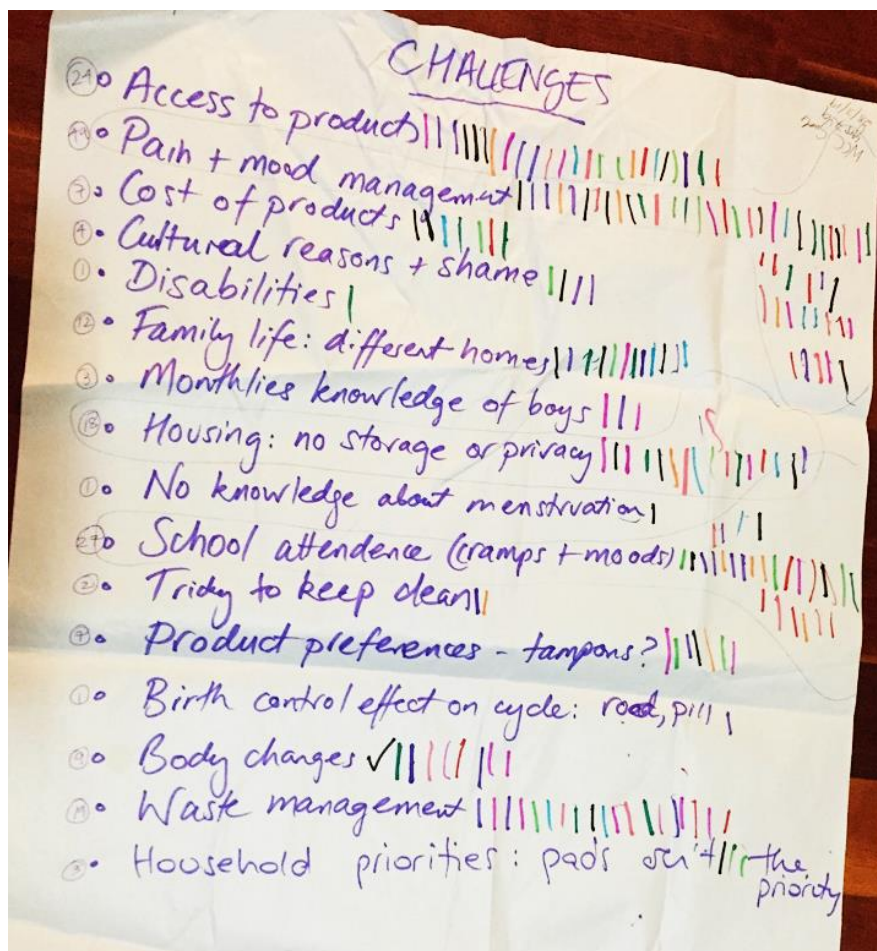 CHALLENGES
24 • Access to products
49 • Pain + mood management
7 • Cost of products
4 • Cultural reasons + shame
1 • Disabilities
12 • Family life: different homes
3 • Monthlies knowledge of boys
18 • Housing: no storage or privacy
1 • No knowledge about menstruation
27 • School attendence (cramps + moods)
2 • Tricky to keep clean
7 • Product preferences - tampons?
1 • Birth control effect on cycle: rod, pill
9 • Body changes ✓
• Waste management
3 • Household priorities: pads isn't the
priority